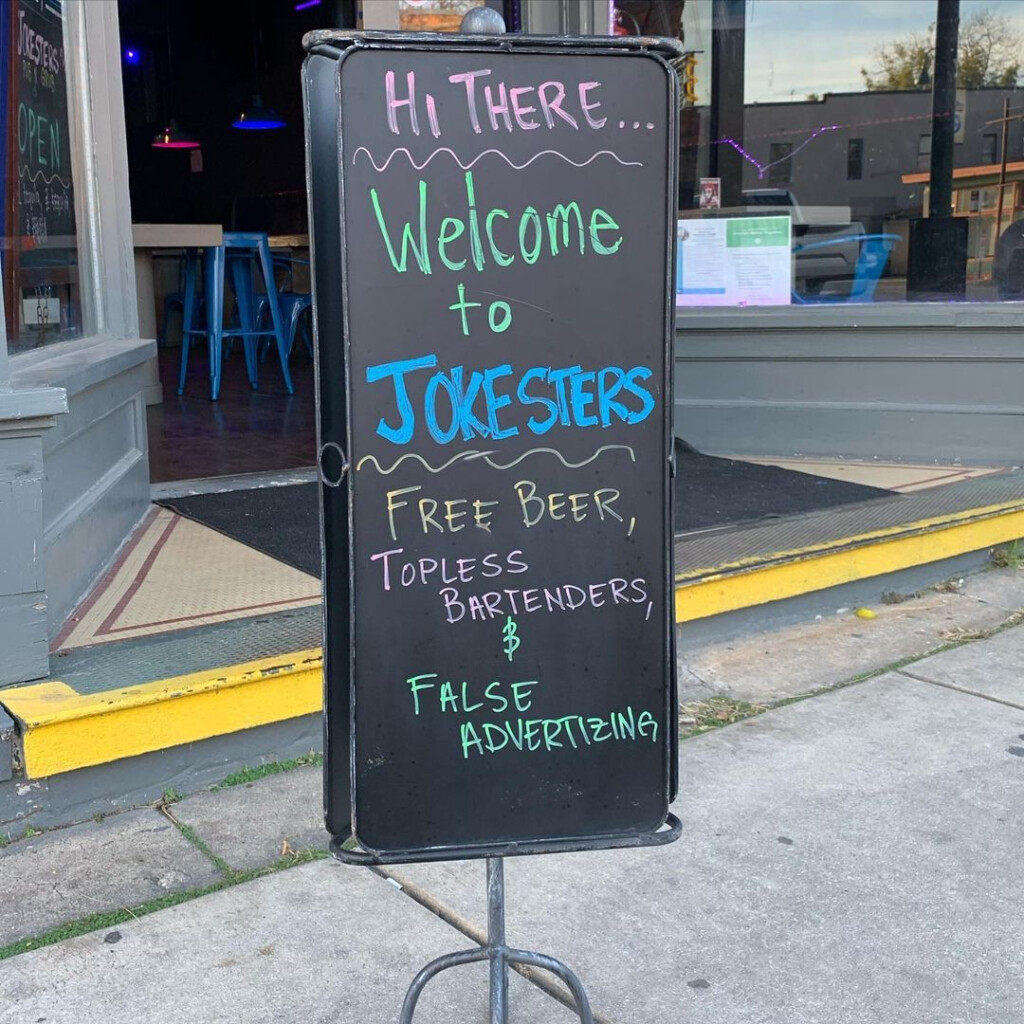 Hi THERE...
Welcome
to
JOKESTERS
FREE BEER,
TOPLESS
BARTENDERS,
$
FALSE
ADVERTIZING
JOKESTERS'
OPEN